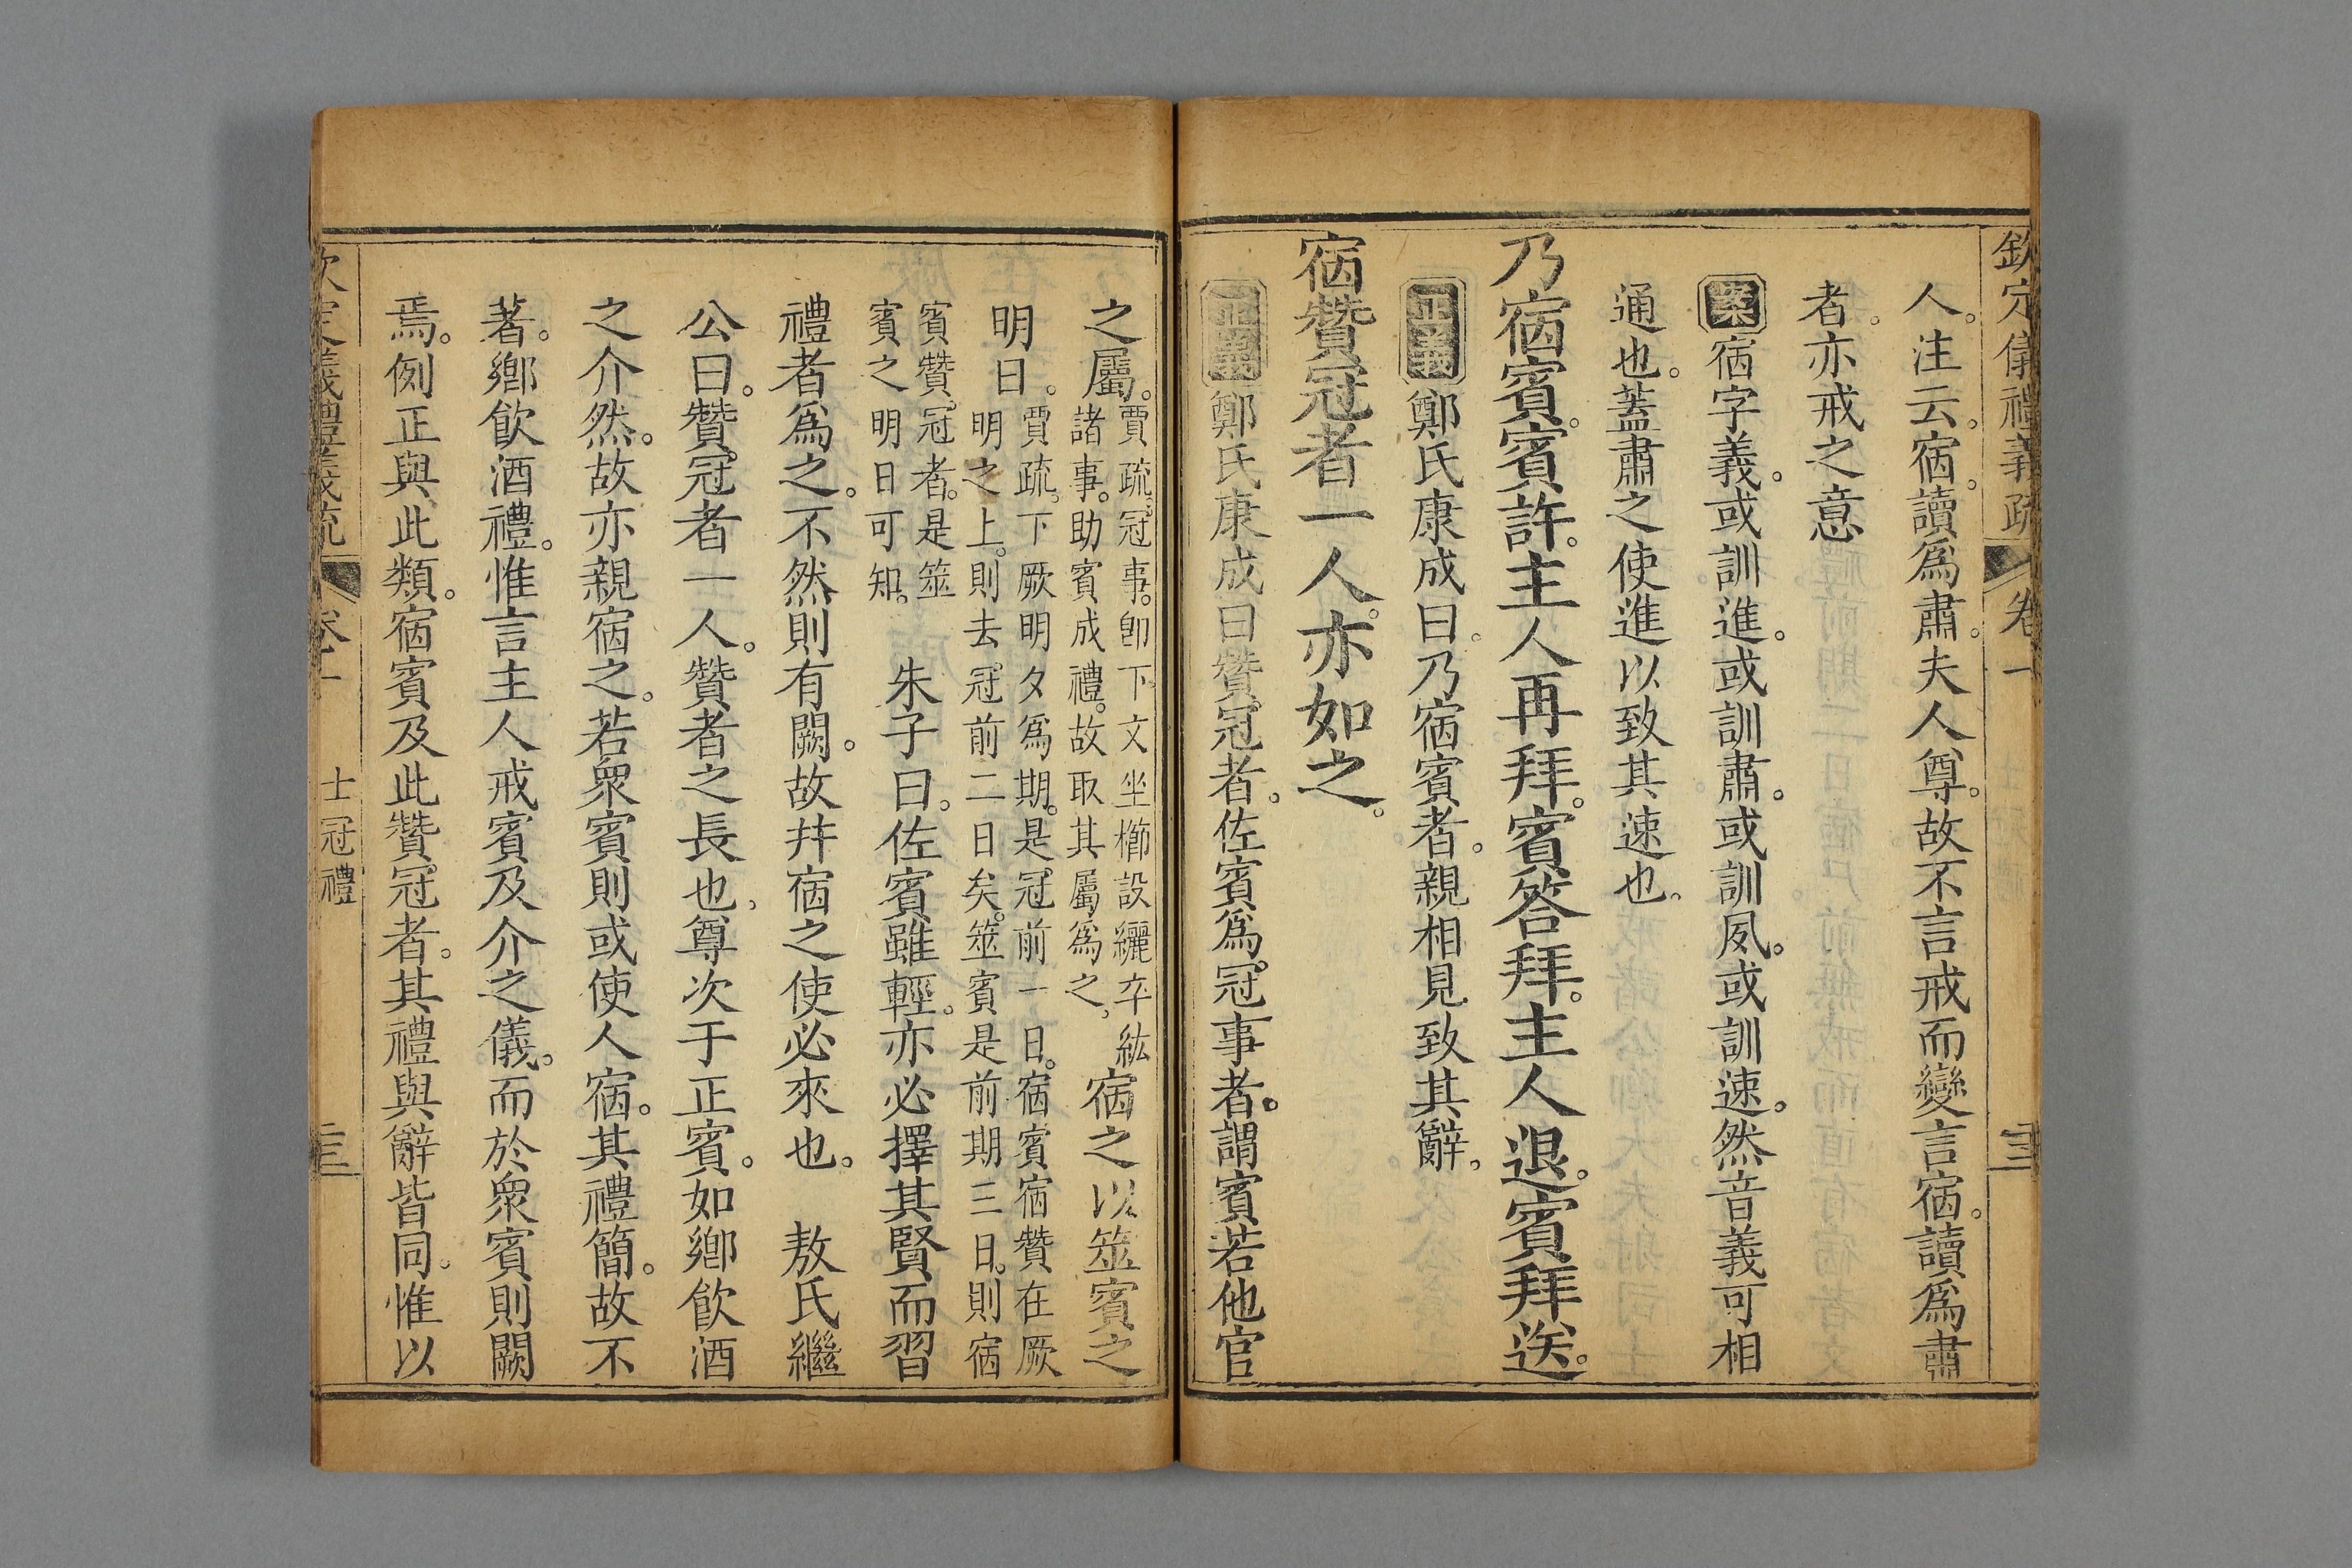 欽定儀禮義疏 卷一
人。注云。宿。讀爲肅。夫人尊。故不言戒而變言宿。讀爲肅
者。亦戒之意
案宿字義。或訓進。或訓肅。或訓夙。或訓速。然音義可相
通也。蓋肅之使進以致其速也。
乃宿賓。賓許。主人再拜。賓答拜。主人退。賓拜送。
正義鄭氏康成曰。乃宿賓者。親相見致其辭。
宿贊冠者一人。亦如之。
正義鄭氏康成曰贊冠者。佐賓爲冠事者。謂賓若他官
之屬。賈疏。冠事。卽下文坐櫛設纚卒紘
諸事。助賓成禮。故取其屬爲之。宿之以筮賓之
明日。賈疏。下厥明夕爲期。是冠前一日。宿賓宿贊在厥
明之上。則去冠前二日矣。筮賓是前期三日。則宿
賓贊冠者。是筮
賓之明日可知。朱子曰。佐賓雖輕。亦必擇其賢而習
禮者爲之。不然則有闕。故幷宿之使必來也。敖氏繼
公曰。贊冠者一人。贊者之長也。尊次于正賓。如鄉飮酒
之介然。故亦親宿之。若衆賓則或使人宿。其禮簡。故不
著。鄉飮酒禮。惟言主人戒賓及介之儀。而於衆賓則闕
焉。例正與此類。宿賓及此贊冠者。其禮與辭皆同。惟以
士冠禮